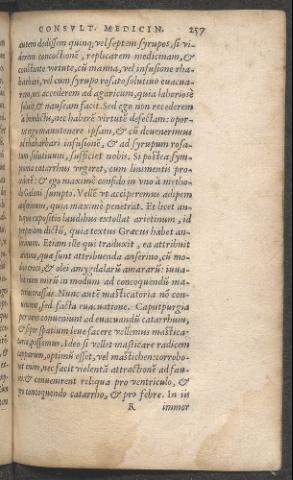 CONSVLT. MEDICIN. 257
autem dedissem quinq; vel septem syrupos, si vi-
derem concoctionē, replicarem medicinam, &
cū manna, vel infusione rha-
barbari, vel cum syrupo rosato solutiuo euacua-
rem, nec accederem ad agaricum, quia laboriosè
soluit, & nauseam facit. Sed ego non recederem
à benedictis, nec haberē virtutē defectam: opor-
manutenere ipsam, & cū deuenerimus
rhabarbari infusionē, & ad syrupum rosa-
tum solutiuum, sufficiet nobis. Si postea sym-
catarrhus vrgeret, cum linimentis pro-
& ego maximè confido in vno à
Galeni sumpto. Velle vt acciperemus adipem
anserinum, quia maximè penetrat. Et licet an-
expositio laudibus extollat arietinum, id
perperam dictū, quia textus Græcus habet an-
serinum. Etiam ille qui traduxit, ea attribuit
quæ sunt attribuenda anserino, cū mo-
& olei amygdalarū amararū: iuua-
bit enim mirū in modum ad concoquendū ma-
Nunc autē masticatoria nō con-
sed facta euacuatione. Caputpurgia
conueniunt ad euacuandū catarrhum,
& spatium leue facere vellemus mastica-
possimus. Ideo si vellet masticare radicem
capparum, optimū esset, vel mastichen: corrobo-
rat enim, nec facit violentā attractionē ad fau-
& conuenirent reliqua pro ventriculo, &
concoquendo catarrho, & pro febre. In iis
R immor